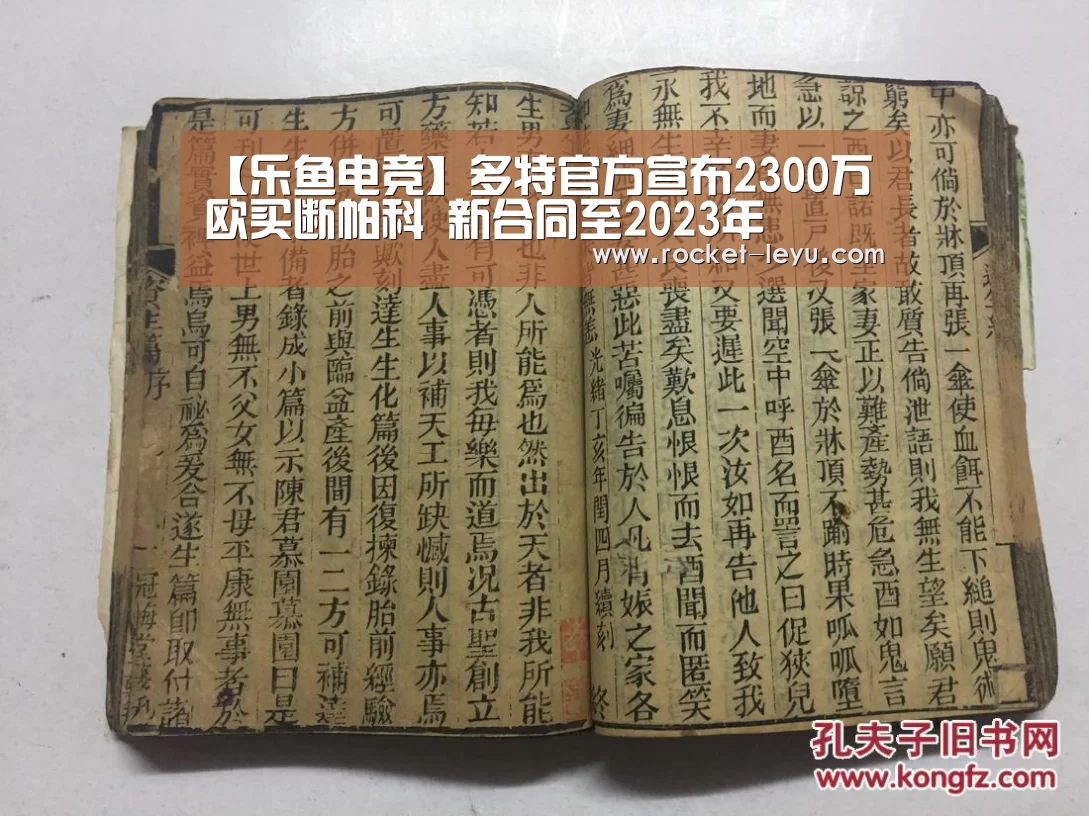 【乐鱼电竞】多特官方宣布2300万
欧买断帕科 新合同至2023年
www.rocket-leyu.com
中亦可倘於牀頂再張一傘使血餌不能下縋則鬼術
窮矣以君長者故敢質告倘泄語則我無生望矣願君
諒之酉諾既至家妻正以難產勢甚危急酉如鬼言
急以一直尸後又張一傘於牀頂不踰時果呱呱墮
地而妻無患少選聞空中呼酉名而詈之曰促狹兒
我不幸又要遲此一次汝如再告他人致我
永無生喪盡矣歎息恨恨而去酉聞而匿笑
爲妻細惡此苦囑徧告於人凡有娠之家各
無恙光緒丁亥年閏四月續刻 終
生男也非人所能爲也然出於天者非我所能
知若有可憑者則我毋樂而道焉況古聖創立
方藥使人盡人事以補天工所缺憾則人事亦焉
可置歟刻達生生化篇後因復揀錄胎前經驗
方併胎之前與臨盆產後間有一二方可補達
生生備者錄成小篇以示陳君慕園慕園曰是
可刊世上男無不父女無不母平康無事者於
是篇實資裨益焉烏可自祕爲爰合遂生篇卽取付諸
生篇序 一 冠悔堂
孔夫子旧书网
www.kongfz.com